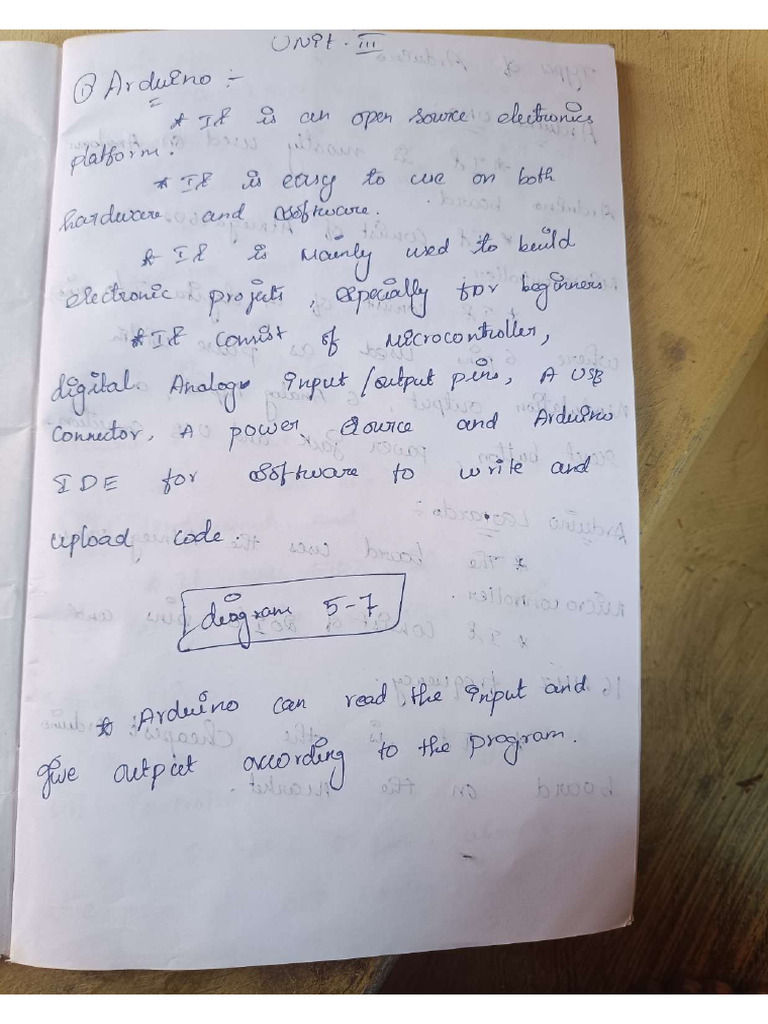 UNit - III
① Arduino :-
* It is an open source electronics
platform.
* It is easy to use on both
hardware and software.
* It is Mainly used to build
electronic projects, especially for beginners
* It consist of Microcontroller,
digital Analog input/output pins, A USB
Connector, A power source and Arduino
IDE for software to write and
upload code.
diagram 5-7
* Arduino can read the input and
give output according to the program.